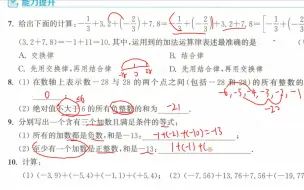 能力提升
7. 给出下面的计算:-1/3+3.2+(-2/3)+7.8=[(-1/3)+(-2/3)]+3.2+7.8=[-1/3+
(3.2+7.8)=-1+11=10.其中,运用到的加法运算律表述最准确的是
A. 交换律 B. 结合律
C. 先用交换律,再用结合律 D. 先用结合律,再用交换律
8. (1)在数轴上表示数-28与28的两个点之间(包括-28和28)的所有整数的
0
(2)绝对值不大于6的所有负整数的和为 -21
-6,-5,-4,-3,-2,-1
9. 分别写出一个含有三个加数且满足条件的等式:
(1)所有的加数都是负数,和是-13; -1+(-2)+(-10)=-13
(2)至少有一个加数是正整数,和是-13; 1+(-1)+(
10. 计算:
(1)(-3.9)+(-5.4)+(+5.4)+(-5.1)+0.